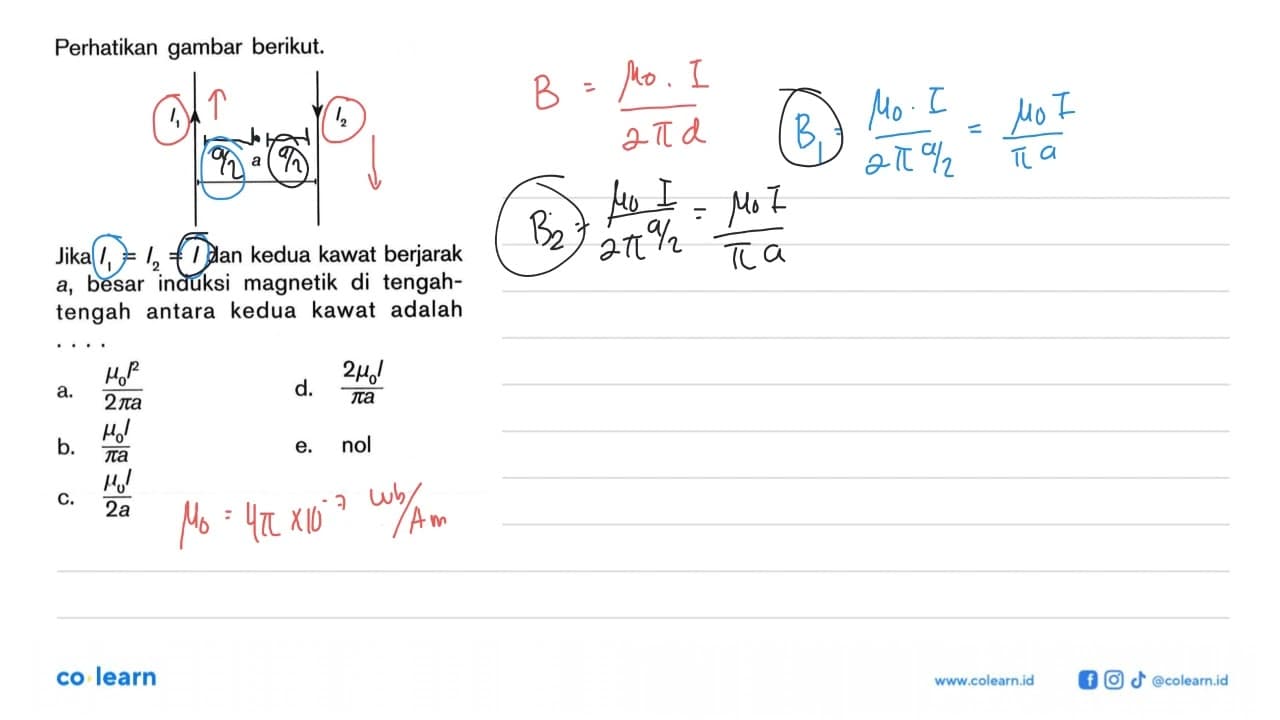 Perhatikan gambar berikut.
I₁ ↑ I₂
a/2 a a/2
Jika I₁ = I₂ = I dan kedua kawat berjarak
a, besar induksi magnetik di tengah-
tengah antara kedua kawat adalah
. . . .
a. μ₀I²/2πa
b. μ₀I/πa
c. μ₀I/2a
d. 2μ₀I/πa
e. nol
μ₀ = 4π × 10⁻⁷ Wb/Am
B = μ₀ . I / 2πd
B₁ = μ₀ . I / 2π a/2 = μ₀ I / π a
B₂ = μ₀ I / 2π a/2 = μ₀ I / π a
co learn
www.colearn.id
@colearn.id